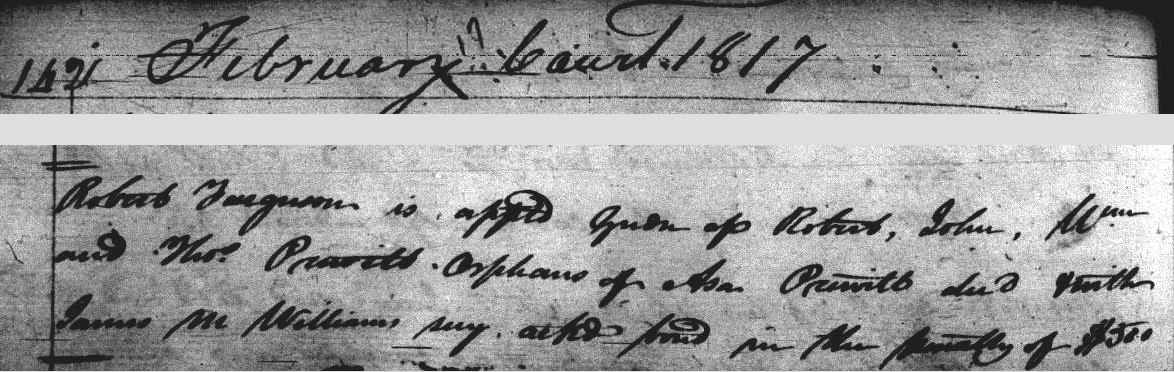 142 February Court 1817
Robert Ferguson is apptd Gurdn of Robert, John, Wm
and Thos. Prewitt Orphans of Asa Prewitt decd & with
James McWilliams secy. ackd bond in the penalty of $500